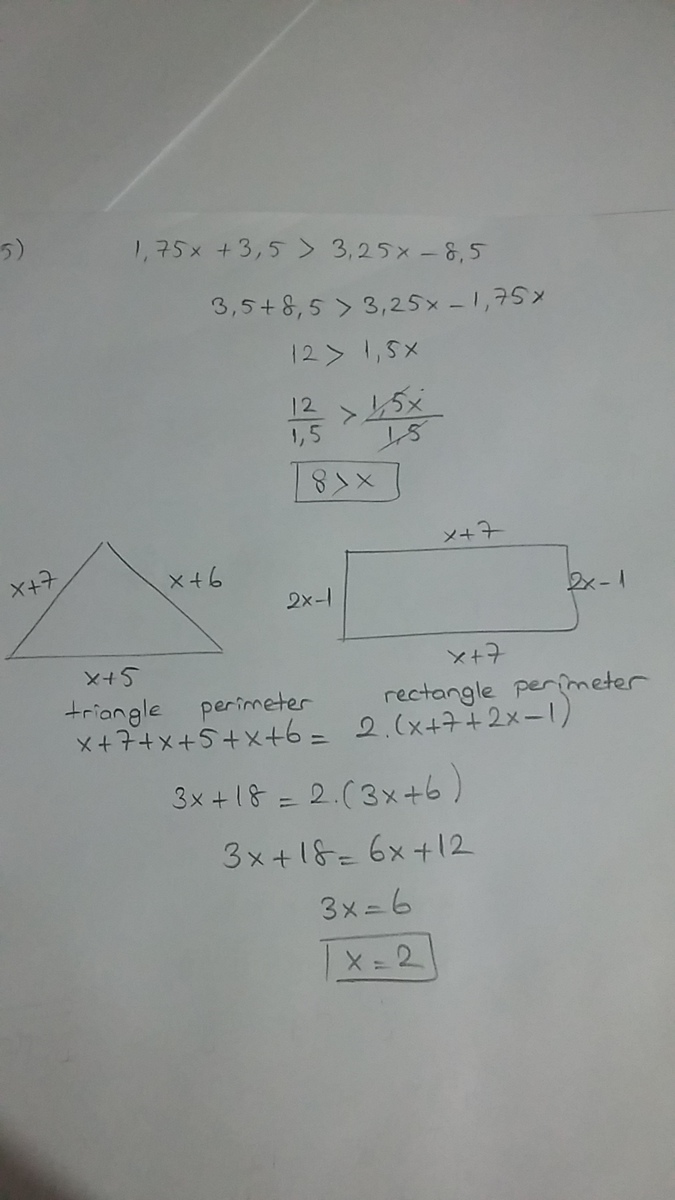 5) 1,75x + 3,5 > 3,25x - 8,5
3,5 + 8,5 > 3,25x - 1,75x
12 > 1,5x
12/1,5 > 1,5x/1,5
8 > x
x+7
x+7 x+6 2x-1 2x-1
x+5 x+7
triangle perimeter rectangle perimeter
x+7+x+5+x+6 = 2.(x+7+2x-1)
3x+18 = 2.(3x+6)
3x+18 = 6x+12
3x = 6
x = 2